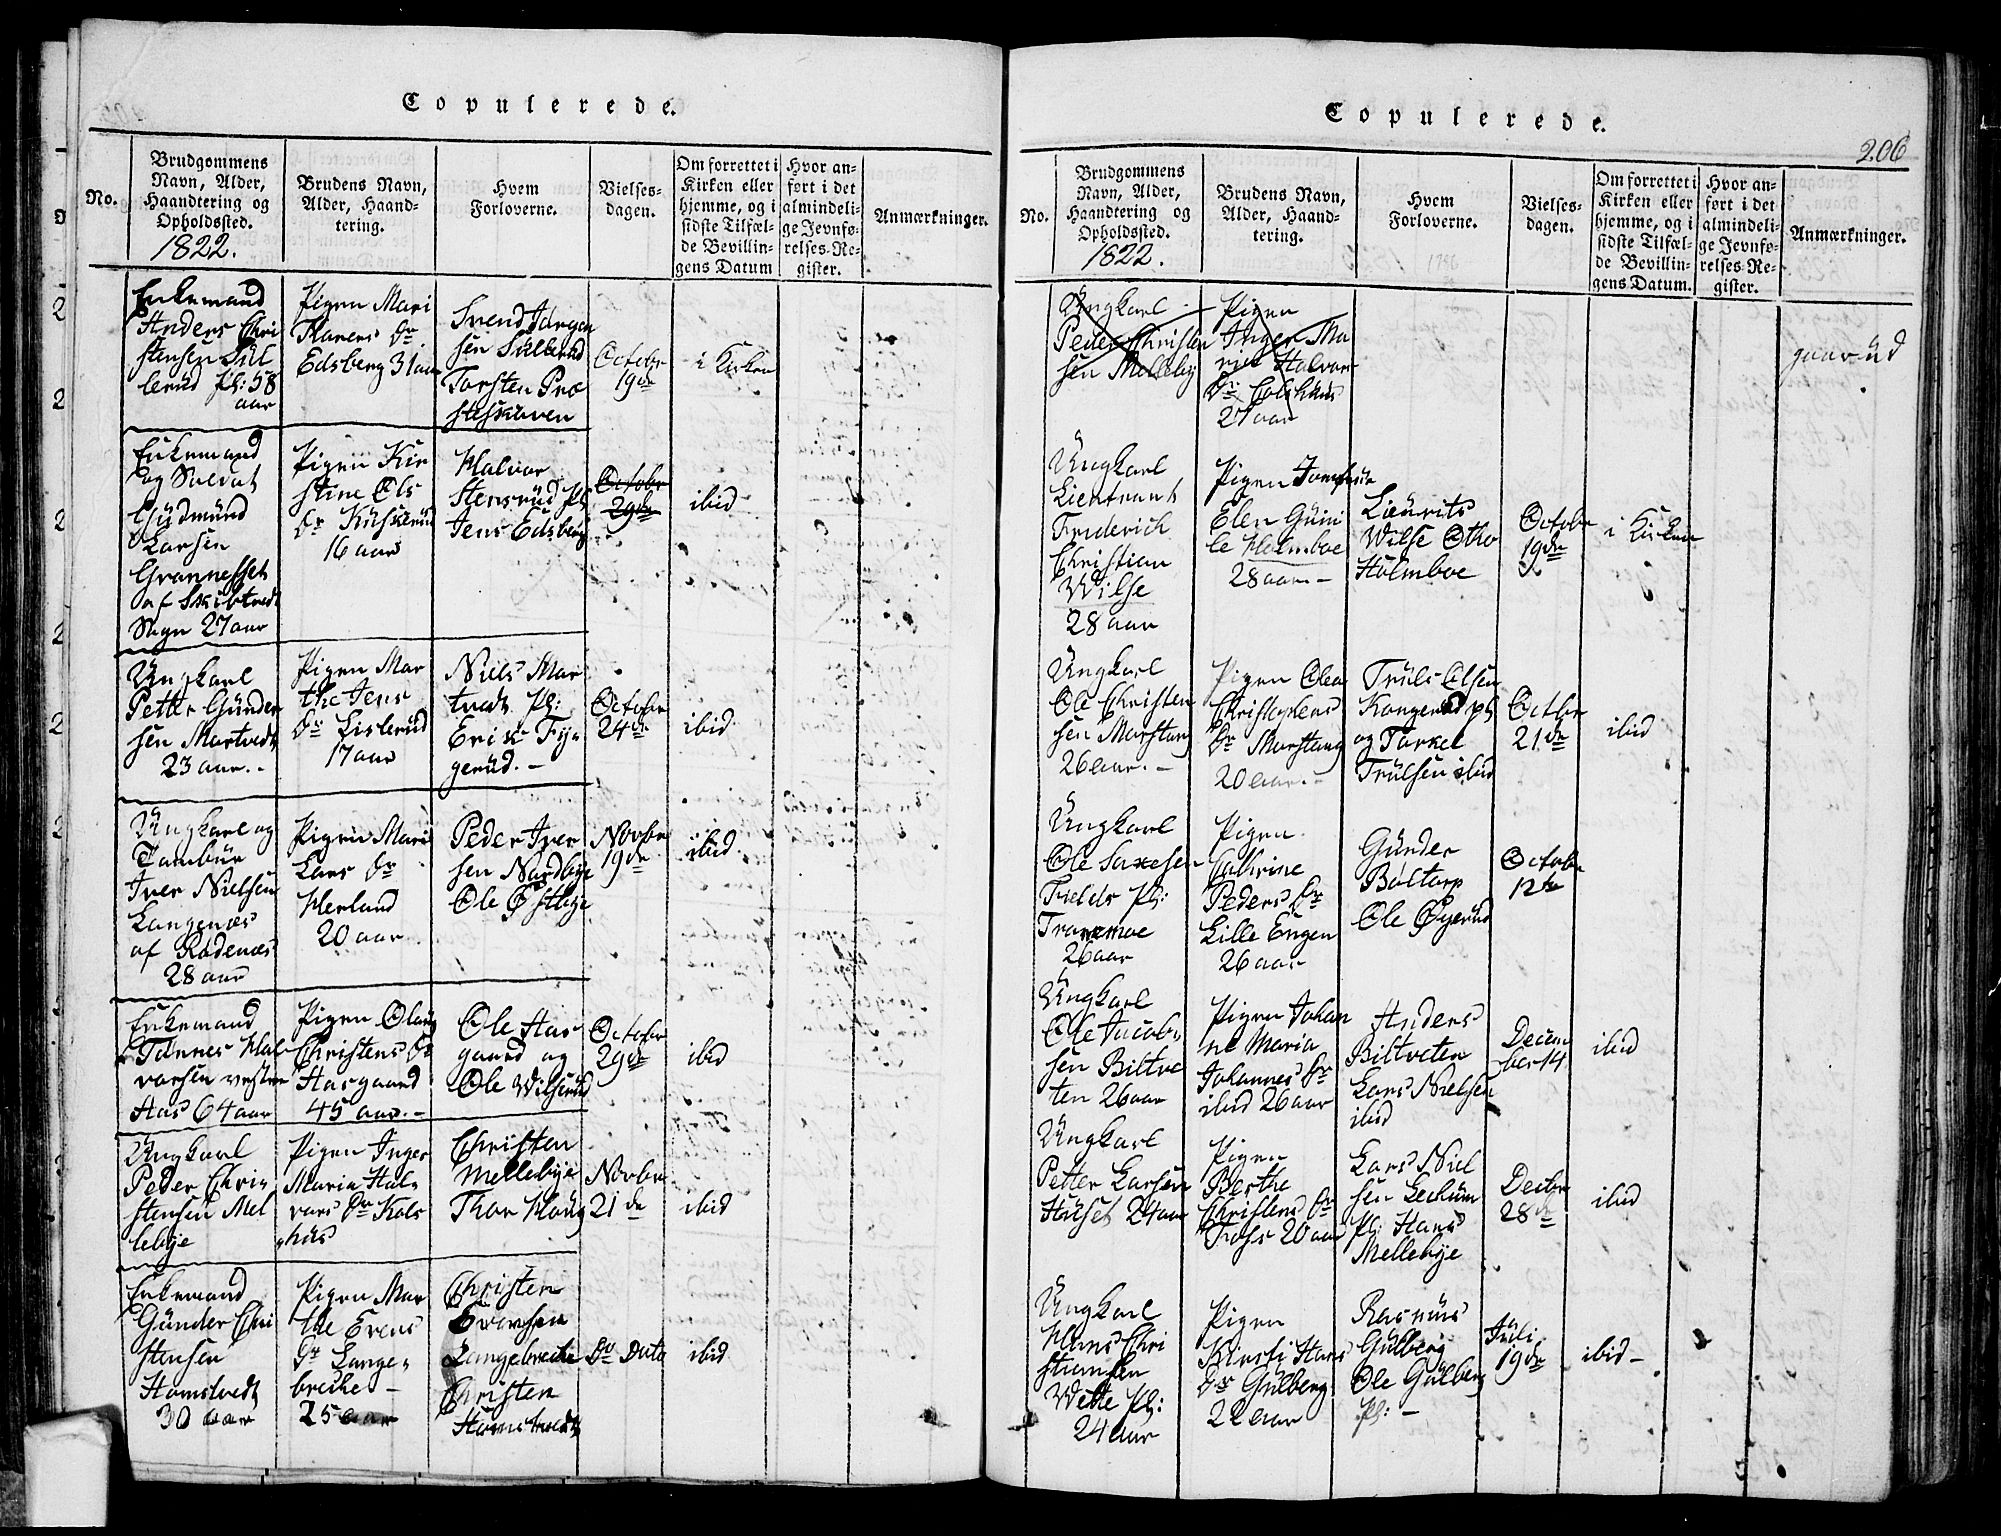 Copulerede.
No.
Brudgommens
Navn, Alder,
Haandtering og
Opholdssted.
1822.
Brudens Navn,
Alder, Haand-
tering.
Hvem
Forloverne.
Vielses-
dagen.
Om forrettet i
Kirken eller
hjemme, og i
sidste Tilfæl-
de Bevillin-
gens Datum
Hvor an-
ført i det
almindeli-
ge Jevnfø-
relses-Re-
gister.
Anmærkninger.
Enkemand
Anders Chri
stensen Sul
lerud Pl: 58
aar
Pigen Mari
Larers Dr
Edsberg 31 aar
Svend Jørgen
sen Sullerud
Torsten Præ
steskoven
Octobr
19de
i Kirken
Enkemand
og Soldat
Gudmund
Larsen
Grannesset
af Skibtvedt
Sogn 27 aar
Pigen Kir
stine Ols
Dr Kuskerud
16 aar
Halvor
Stensrud Pl:
Jens Edsberg
Octobr
29de
ibid
Ungkarl
Petter Gunder
sen Mortvedt
23 aar.-
Pigen Mar
the Jens
Dr Lislerud
17 aar
Niels Mor
tvedt Pl:
Erik Fy-
gerud.-
Octobr
24de
ibid
Ungkarl og
Tambur
Iver Nielsen
Langenæs
af Rødenæs
28 aar
Pigen Mari
Lars Dr
Herland
20 aar
Peder Iver
sen Nordbye
Ole Østbye
Novbr
19de
ibid
Enkemand
Tønnes Hal
vorsen vestre
Aas 64 aar
Pigen Olaug
Christens Dr
Aasgaard
45 aar.-
Ole Aas
gaard og
Ole Wilsrud
Octobr
29de
ibid
Ungkarl
Peder Chri-
stensen Mel
lebye
Pigen Inger
Maria Hal-
vors Dr Kols
hus
Christen
Mellebye
Thor Haug
Novbr
21de
ibid
Enkemand
Gunder Chri
stensen
Homstvedt
30 aar
Pigen Mar
the Evens
Dr Lange-
breche -
25 aar
Christen
Evensen
Langebreche
Christen
Homstvedt
Do Dato
ibid
Copulerede.
206
No.
Brudgommens
Navn, Alder,
Haandtering og
Opholdssted.
1822.
Brudens Navn,
Alder, Haand-
tering.
Hvem
Forloverne.
Vielses-
dagen.
Om forrettet i
Kirken eller
hjemme, og i
sidste Tilfæl-
de Bevillin-
gens Datum.
Hvor an-
ført i det
almindeli-
ge Jevnfø-
relses-Re-
gister.
Anmærkninger.
Ungkarl
Peder Christen
sen Melleby
Pigen
Inger Ma
ria Halvors
Dr Kolshus
27 aar
gaar ud
Ungkarl
Lieutnant
Friderich
Christian
Wilse
28 aar
Pigen Jomfrue
Elen Guni
le Holmboe
28 aar.-
Laurits
Wilse Otto
Holmboe
Octobr
19de
i Kirken
Ungkarl
Ole Christen
sen Morstang
26 aar.-
Pigen Olea
Christophers
Dr Morstang
20 aar.-
Truls Olsen
Kongerud pl
og Torkel
Trulsen ibid
Octbr
21de
ibid
Ungkarl
Ole Saxesen
Fields Pl:
Tranemoe
26 aar
Pigen
Cathrine
Peders Dr
Lille Engen
26 aar
Gunder
Boltorp
Ole Øyerud
Octobr
12te
Ungkarl
Ole Jacob-
sen Biltve
ten 26 aar
Pigen Johan
ne Maria
Johannes Dr
ibid 26 aar
Anders
Biltveten
Lars Nielsen
ibid
Decem
ber 14
ibid
Ungkarl
Petter Larsen
Huset 24 aar
Pigen
Berthe
Christens Dr
Foss 20 aar
Lars Niel
sen Lechum
Pl: Hans
Mellebye
Decbr
28de
ibid
Ungkarl
Hans Chri
stiansen
Wette Pl:
24 aar
Pigen
Kirsti Hans
Dr Gulberg
22 aar
Rasmus
Gulberg
Ole Gulberg
Pl: -
Juli
19de
ibid -